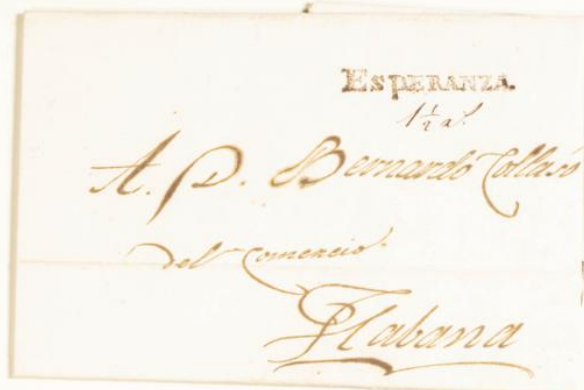 ESPERANZA.
1½ a.l
A. D. Bernardo Collaso
del Comercio.
Habana